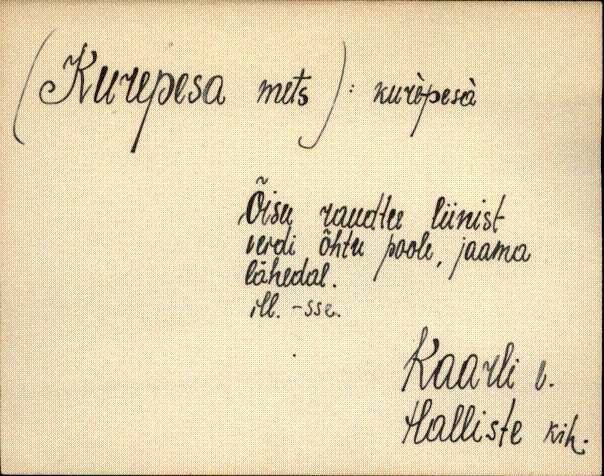 (Kurepesa mets): kurèpesà
Õisu raudtee liinist
verdi õhtu poole, jaama
lähedal.
ill. -sse.
Kaarli v.
Halliste kih.